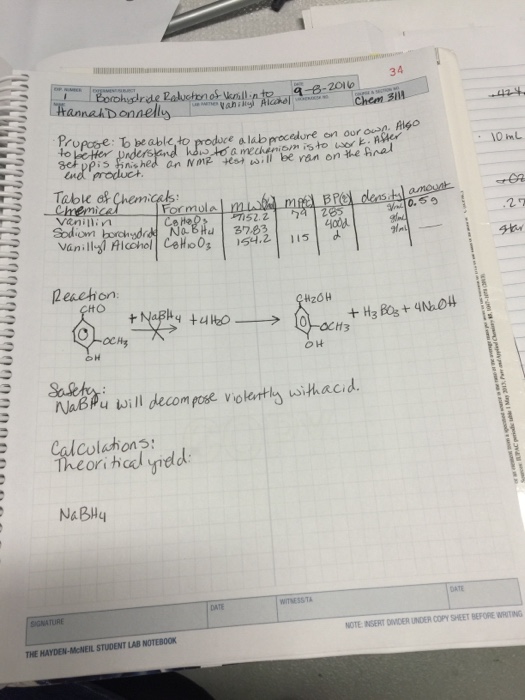 34
1 Borohydride Reduction of Vanillin to 9-8-2016
Vanillyl Alcohol
Hannah Donnelly Chem 3111
Purpose: To be able to produce a lab procedure on our own. Also
to better understand how to a mechanism is to work. After
set up is finished an NMR test will be ran on the final
end product.
Table of Chemicals:
Chemical Formula m.w. mp(°) BP(°) density amount
Vanillin C8H8O3 152.2 79 285 g/mL 0.5g
Sodium borohydride NaBH4 37.83 400d g/mL
Vanillyl Alcohol C8H10O3 154.2 115 d g/mL
Reaction:
CHO CH2OH
+ NaBH4 + 4H2O → + H3BO3 + 4NaOH
OCH3 OCH3
OH OH
Safety:
NaBH4 will decompose violently with acid.
Calculations:
Theoritical yield:
NaBH4
SIGNATURE DATE WITNESS/TA DATE
THE HAYDEN-McNEIL STUDENT LAB NOTEBOOK NOTE: INSERT DIVIDER UNDER COPY SHEET BEFORE WRITING
10 mL